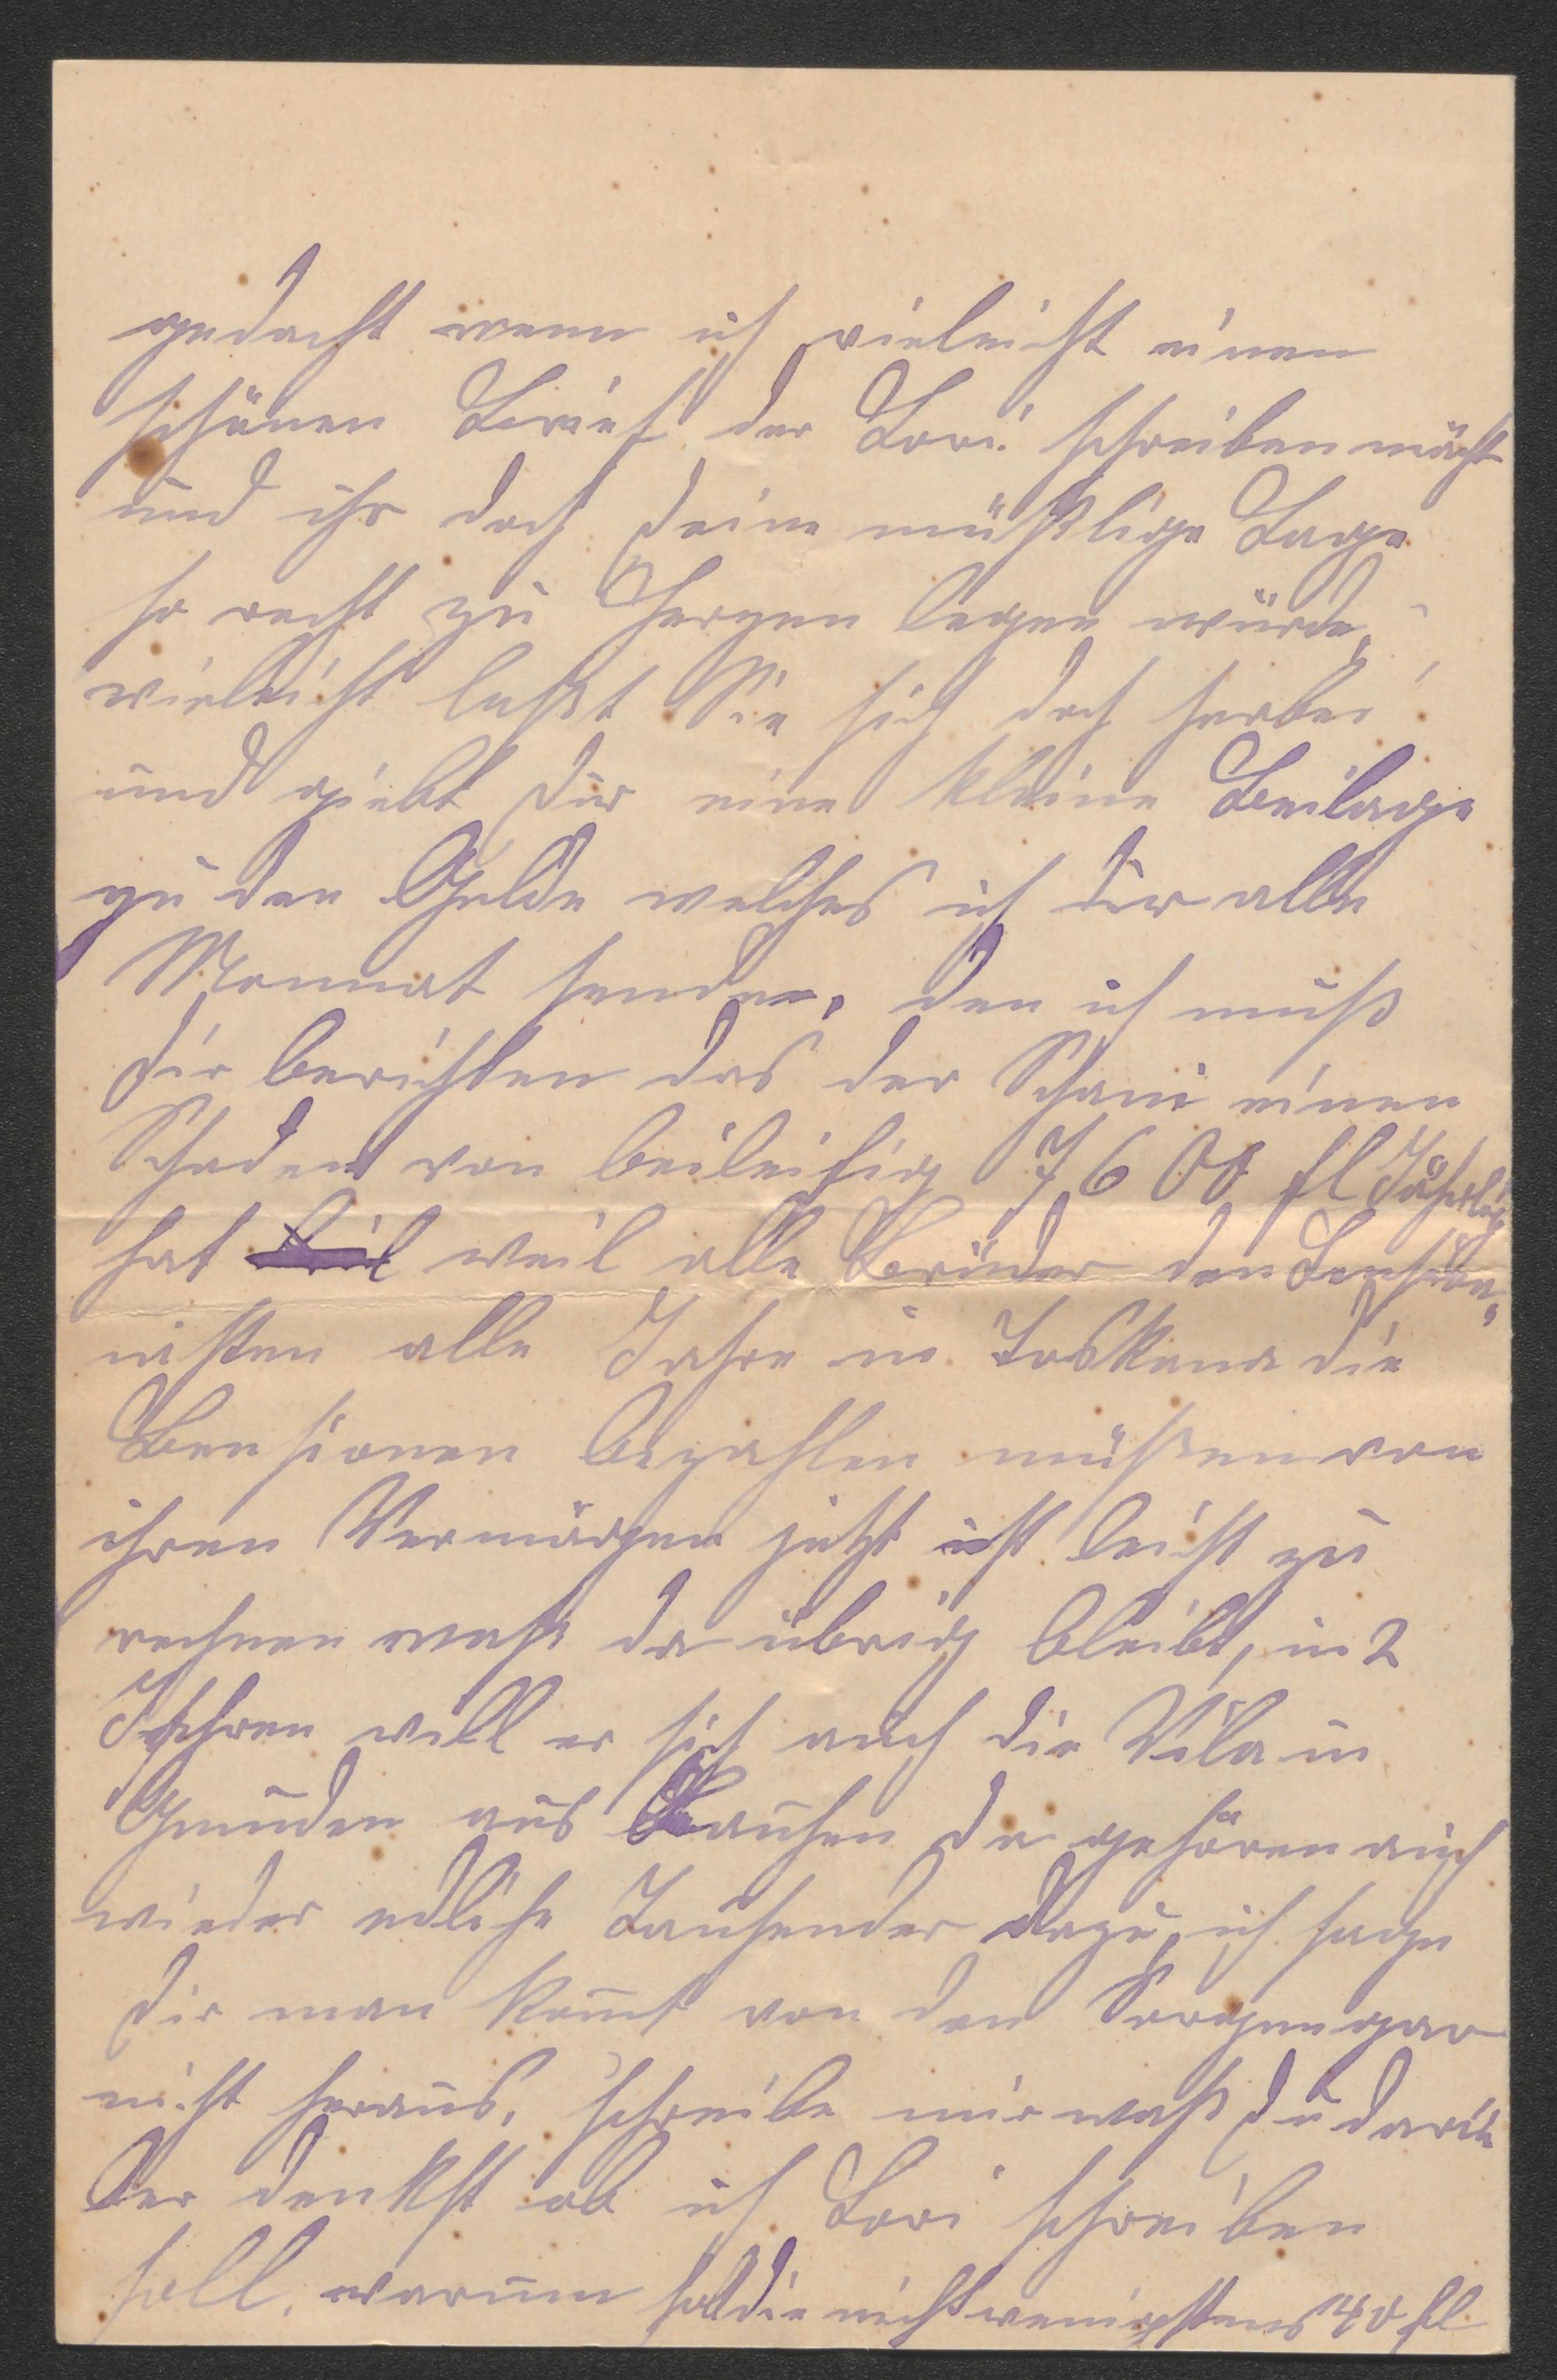 gedacht wenn ich vieleicht einen
schönen Brief der Lori schreiben möcht
und ihr doch Deine mühslige Lage
so recht zu Herzen legen würde,
vieleicht laßt Sie sich doch herbei
und giebt Dir eine kleine Beilage
zu den Gelde welches ich Dir alle
Monnat sende, den ich muß
Dir berichten das der Schani einen
Schaden von beileifig 7600 fl Jährlich
hat weil alle Brüder den Bensio-
nisten alle Jahre in Toskana die
Bensionen bezahlen müßen von
ihren Vermörgen jetzt ist leicht zu
rechnen waß da übrig bleibt, in 2
Jahren will er sich auch die Vila in
Gmunden aus Bauhen da gehören auch
wieder edliche Tausender dazu, ich sage
Dir man komt von den Sorgen gar
nicht heraus, schreibe mir waß Du darü
ber denkst ob ich Lori schreiben
soll, warum soll die nicht wenigstens 40 fl